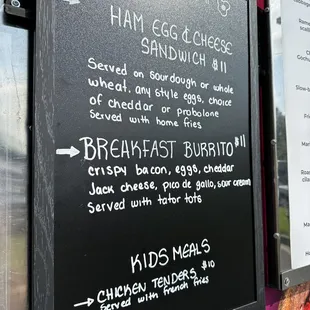 HAM EGG & CHEESE
SANDWICH $11
Served on sourdough or whole
wheat, any style eggs, choice
of cheddar or probolone
Served with home fries
→ BREAKFAST BURRITO $11
crispy bacon, eggs, cheddar
Jack cheese, pico de gallo, sour cream
Served with tator tots
KIDS MEALS
→ CHICKEN TENDERS $10
Served with french fries